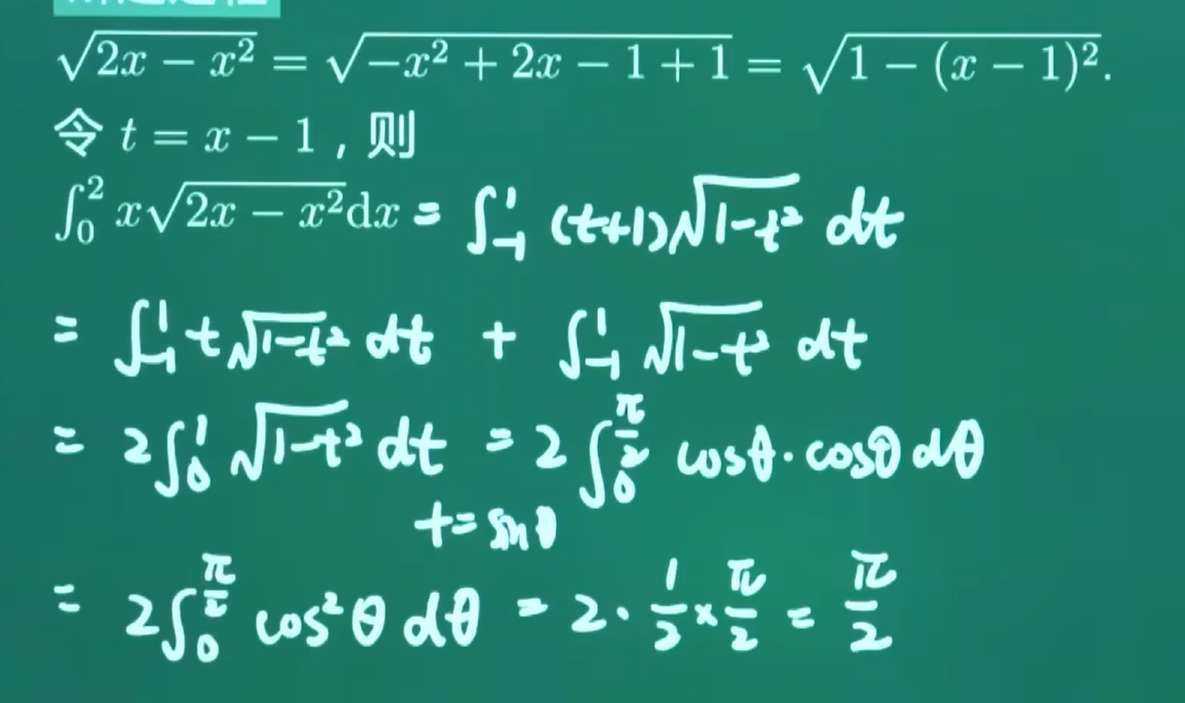 √(2x − x²) = √(−x² + 2x − 1 + 1) = √(1 − (x − 1)²).
令 t = x − 1，则
∫₀² x√(2x − x²)dx = ∫₋₁¹ (t+1)√(1−t²) dt
= ∫₋₁¹ t√(1−t²) dt + ∫₋₁¹ √(1−t²) dt
= 2∫₀¹ √(1−t²) dt = 2∫₀^(π/2) cosθ·cosθ dθ
t=sinθ
= 2∫₀^(π/2) cos²θ dθ = 2·1/2×π/2 = π/2